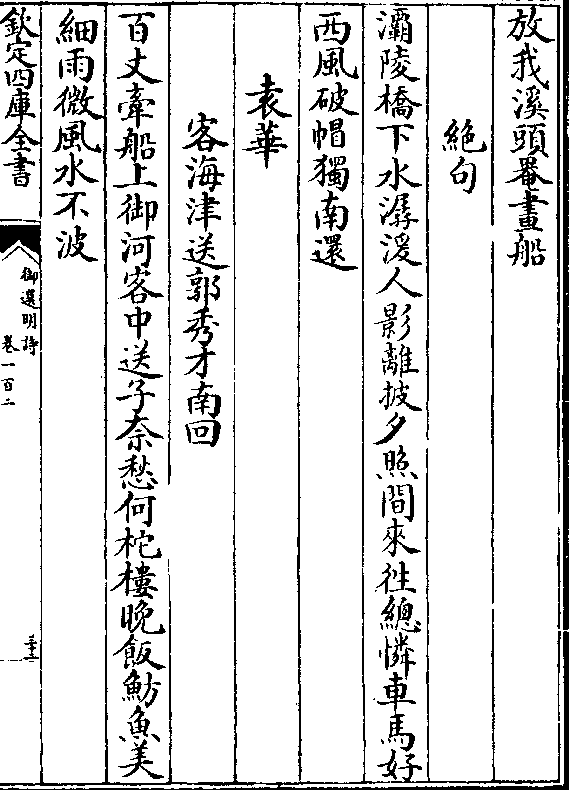 放我溪頭罨畫船
絶句
灞陵橋下水潺湲人影離披夕照間來徃總憐車馬好
西風破帽獨南還
袁華
客海津送郭秀才南回
百丈牽船上御河客中送子奈愁何柁樓晚飯魴魚美
細雨微風水不波
欽定四庫全書
御選明詩
卷一百二